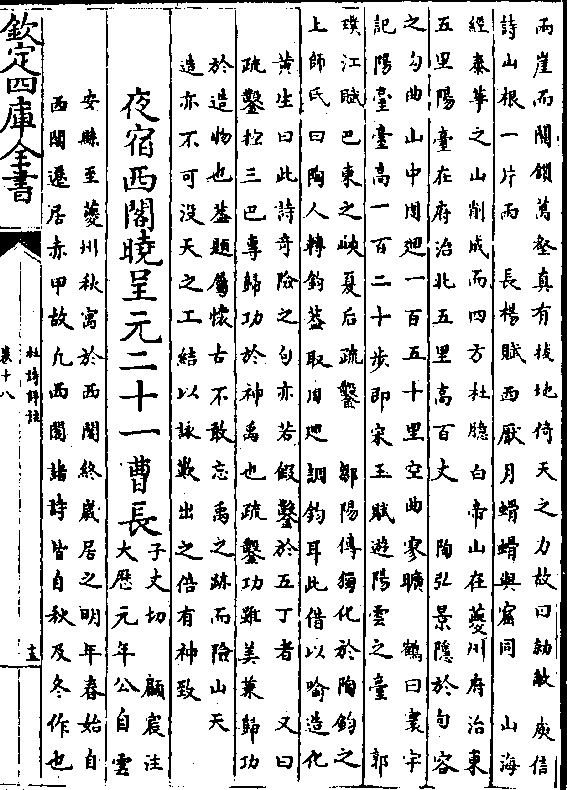 兩崖而關鎖萬壑真有拔地倚天之力故曰勍敵庾信
詩山根一片雨 長楊賦西厭月䠦䠦與窟同 山海
經泰華之山削成而四方杜臆白帝山在夔州府治東
五里陽臺在府治北五里高百丈 陶弘景隱於句容
之句曲山中周廻一百五十里空曲寥曠 鶴曰寰宇
記陽臺臺高一百二十步即宋玉賦遊陽雲之臺 郭
璞江賦巴東之峽夏后疏鑿 鄒陽傳獨化於陶鈞之
上師氏曰陶人轉鈞蓋取周廻調鈞耳此借以喻造化
黄生曰此詩奇險之句亦若假鑿於五丁者 又曰
疏鑿控三巴專歸功於神禹也疏鑿功雖美兼歸功
於造物也蓋題屬懷古不敢忘禹之跡而險山天
造亦不可没天之工結以詠歎出之倍有神致
夜宿西閣曉呈元二十一曹長 子丈切 顧宸注
大歴元年公自雲
安縣至夔州秋寓於西閣終嵗居之明年春始自
西閣遷居赤甲故凡西閣諸詩皆自秋及冬作也
欽定四庫全書
杜詩詳註
卷十八